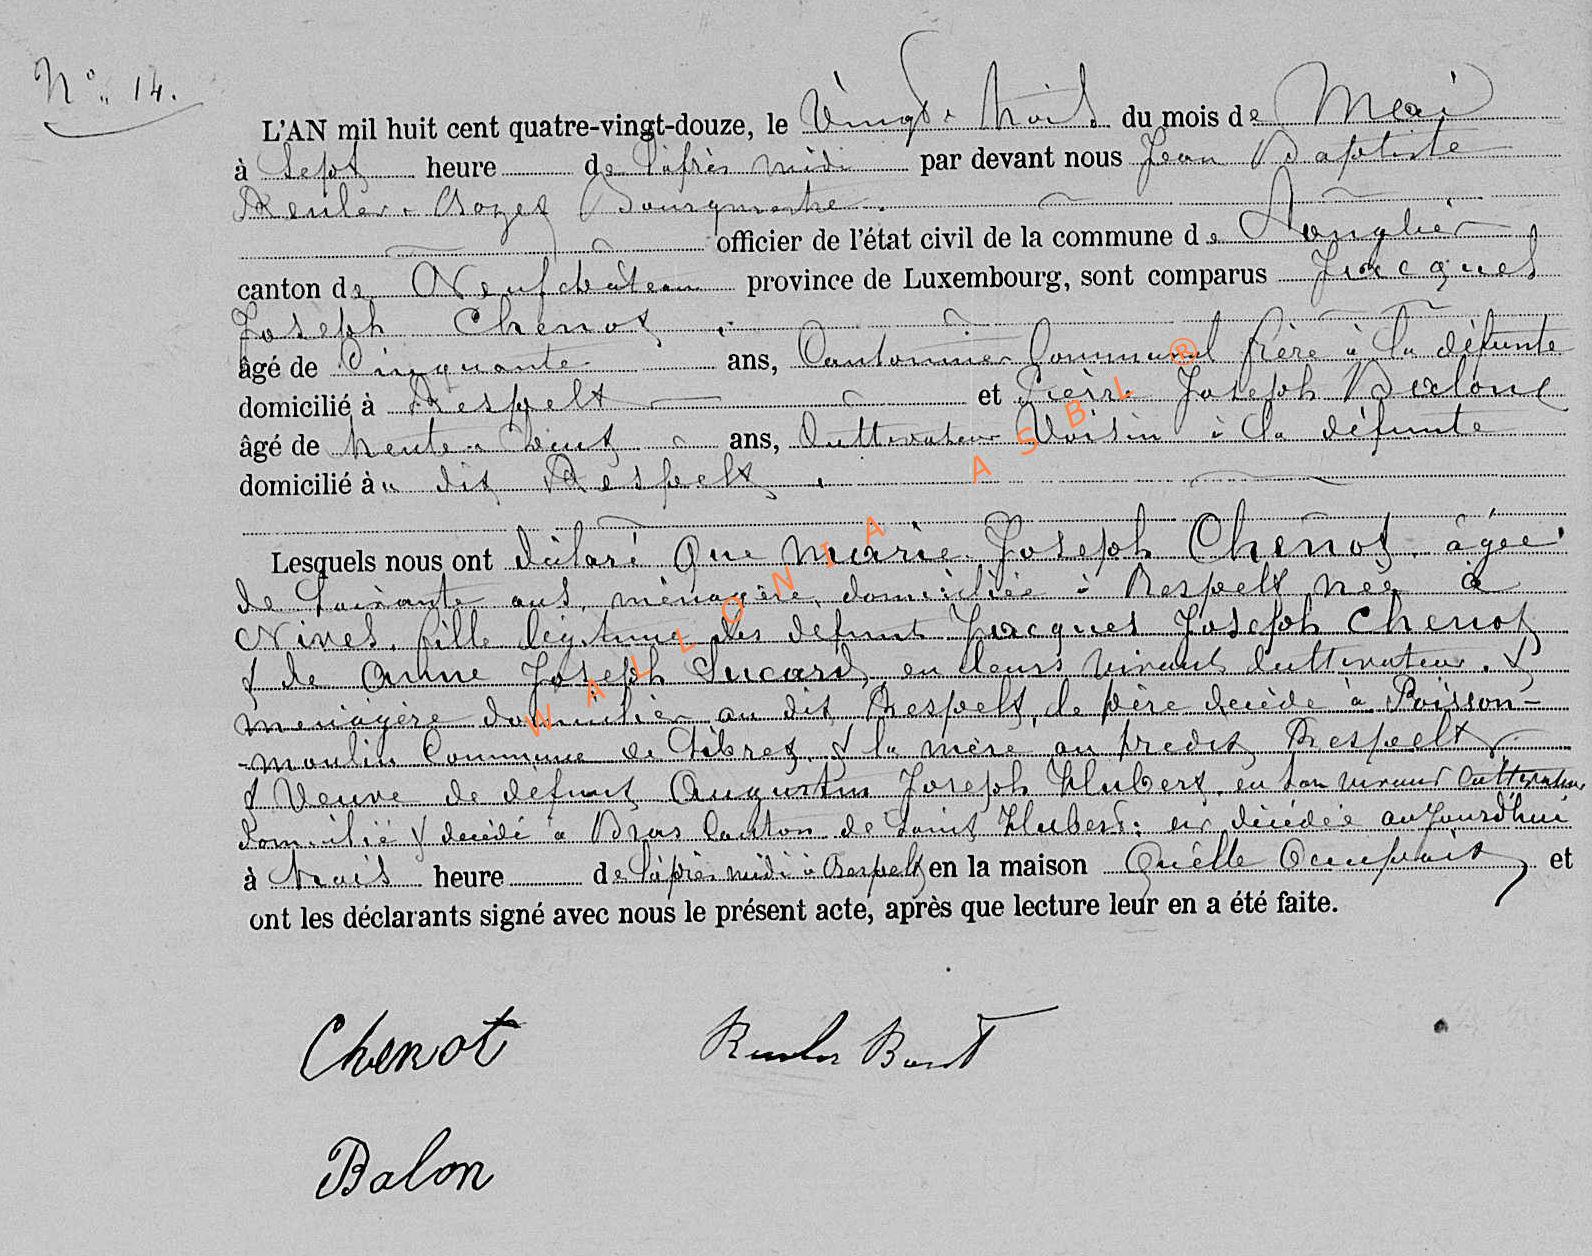 N° 14.
L'AN mil huit cent quatre-vingt-douze, le Vingt trois du mois de Mai
à Sept heure de l'après midi par devant nous Jean Baptiste
Reuler Bourgmestre.
officier de l'état civil de la commune de Longlier
canton de Neufchâteau province de Luxembourg, sont comparus Jacques
Joseph Chenot
âgé de Cinquante ans, Cantonnier Communal frère à la défunte
domicilié à Respelt et Pierre Joseph Baelon
âgé de trente deux ans, Cultivateur Voisin à la défunte
domicilié au dit Respelt.
Lesquels nous ont déclaré Que Marie Joseph Chenot âgée
de Soixante ans, ménagère, domiciliée à Respelt née à
Nives, fille légitime des défunt Jacques Joseph Chenot
& de Anne Joseph Lucard, en leurs vivant Cultivateur &
menagère domiciliés au dit Respelt, le père décédé à Poisson-
-moulin Commune de Sibret & la mère au predit Respelt
& Veuve de defunt Augustin Joseph Hubert en son vivant Cultivateur
domicilié & décédé à Bras Canton de Saint Hubert: est décédée aujourd'hui
à trois heure de l'après midi à Respelt en la maison Quelle Occupait, et
ont les déclarants signé avec nous le présent acte, après que lecture leur en a été faite.
Chenot Reuler Bapt
Balon
WALLONIA ASBL ®